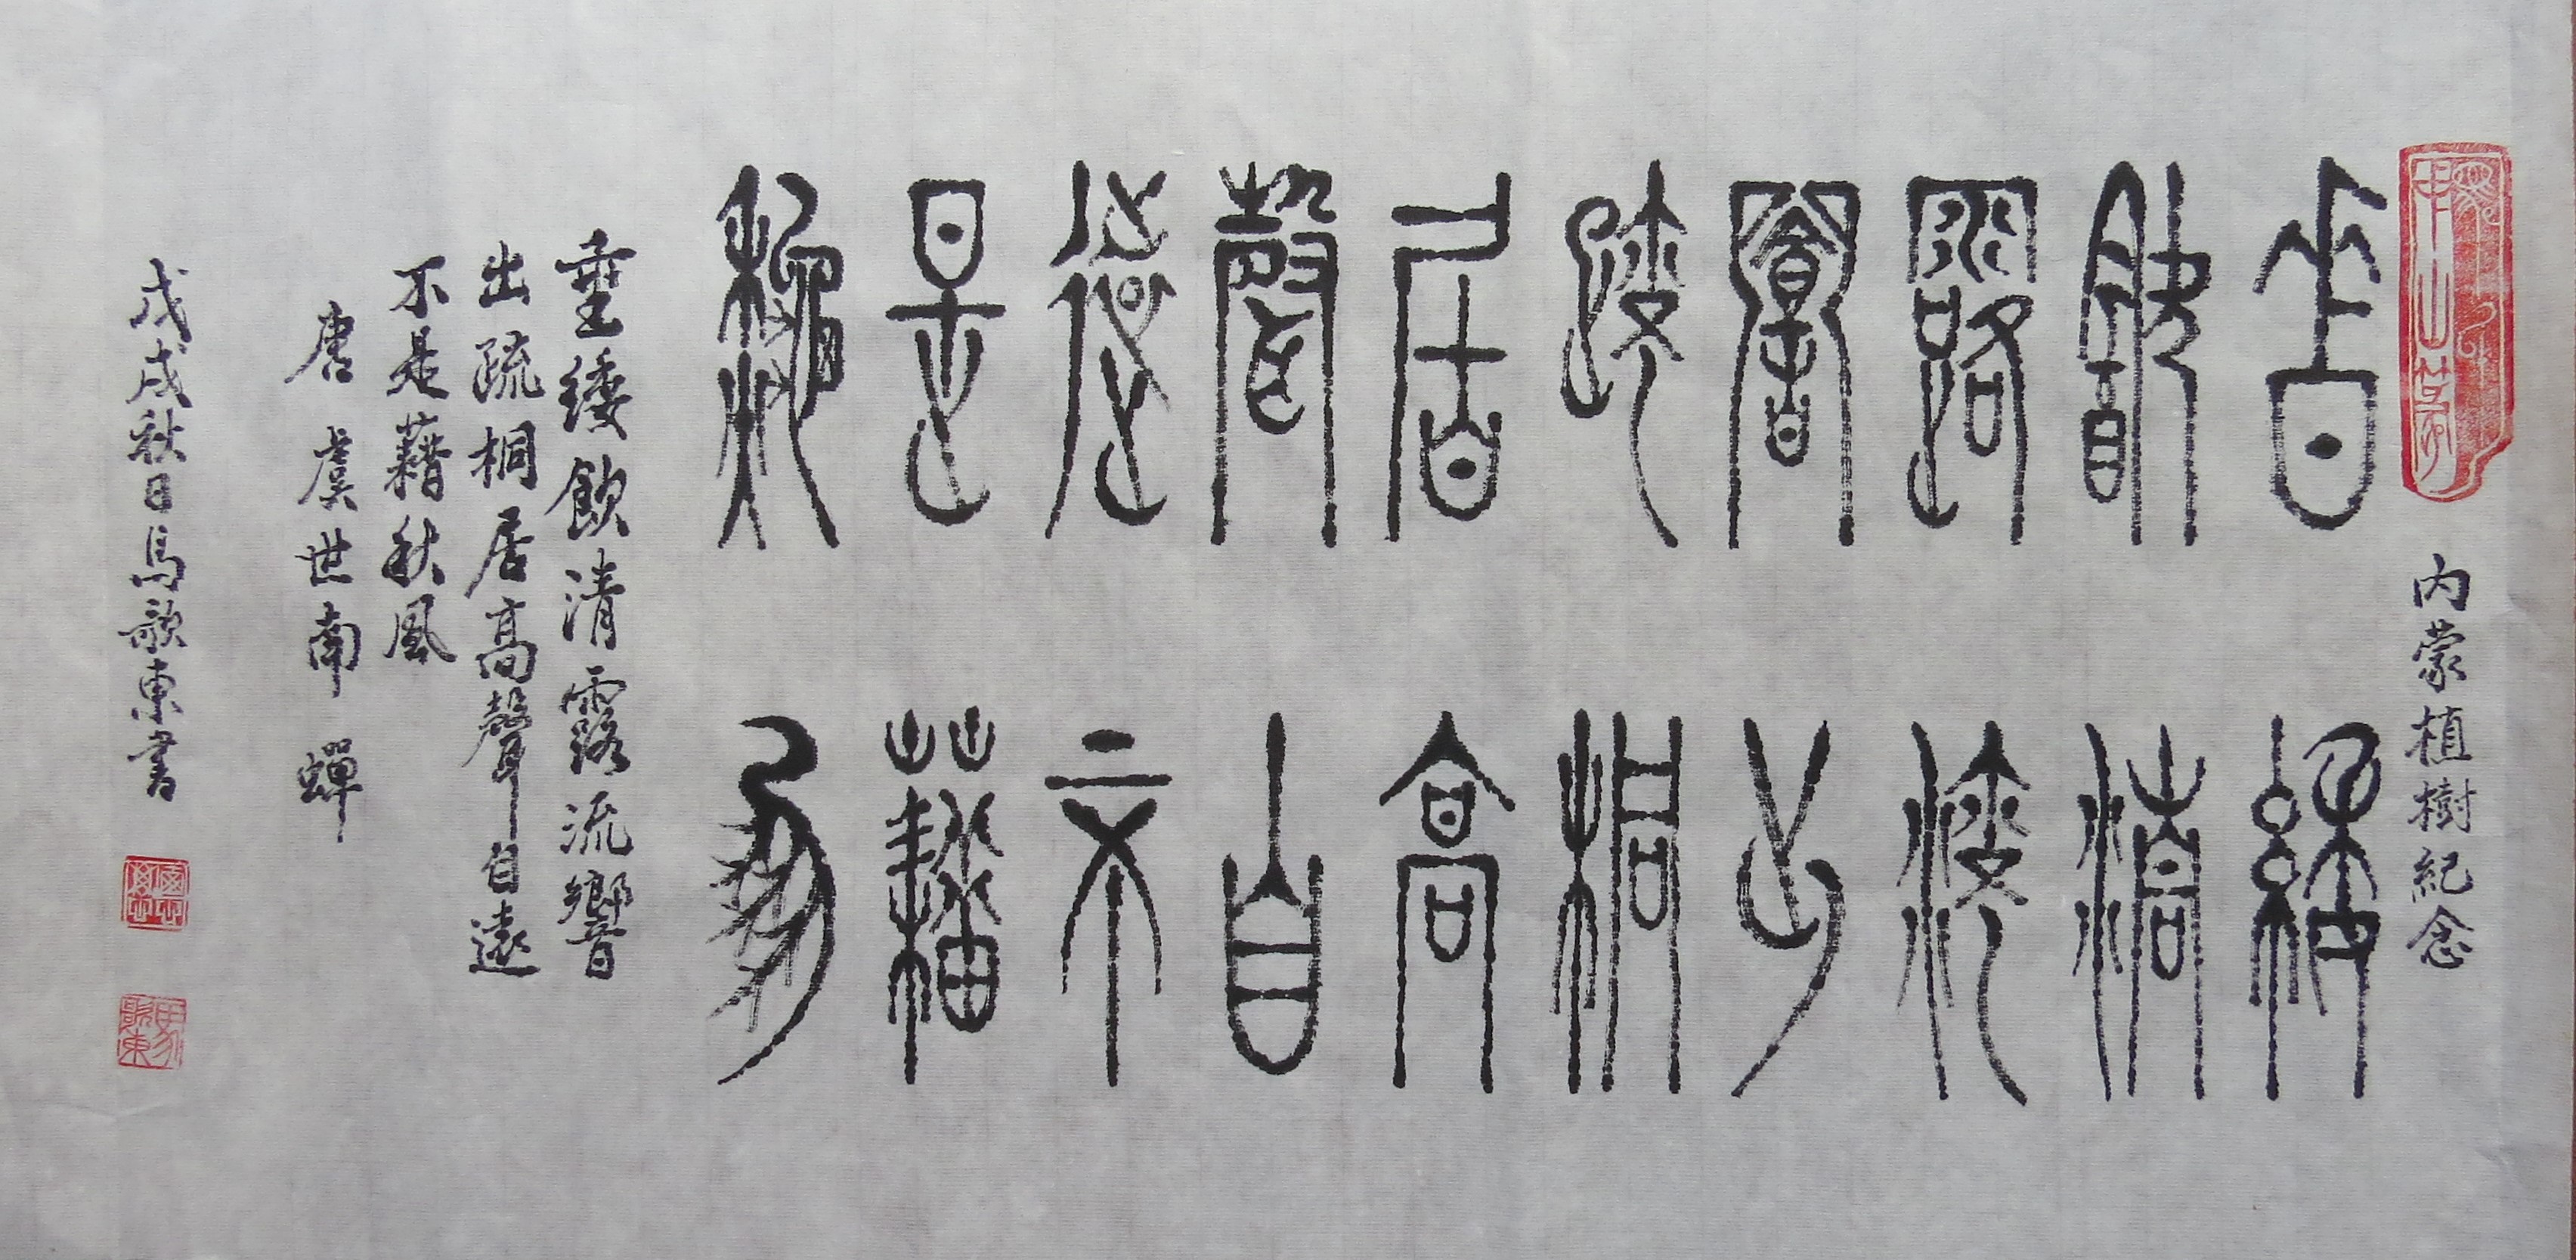 内蒙植樹紀念
垂緌
飲清
露流
響出
疏桐
居高
聲自
遠不
是藉
秋風
垂緌飲清露流響
出疏桐居高聲自遠
不是藉秋風
唐 虞世南 蟬
戊戌秋日馬歌東書